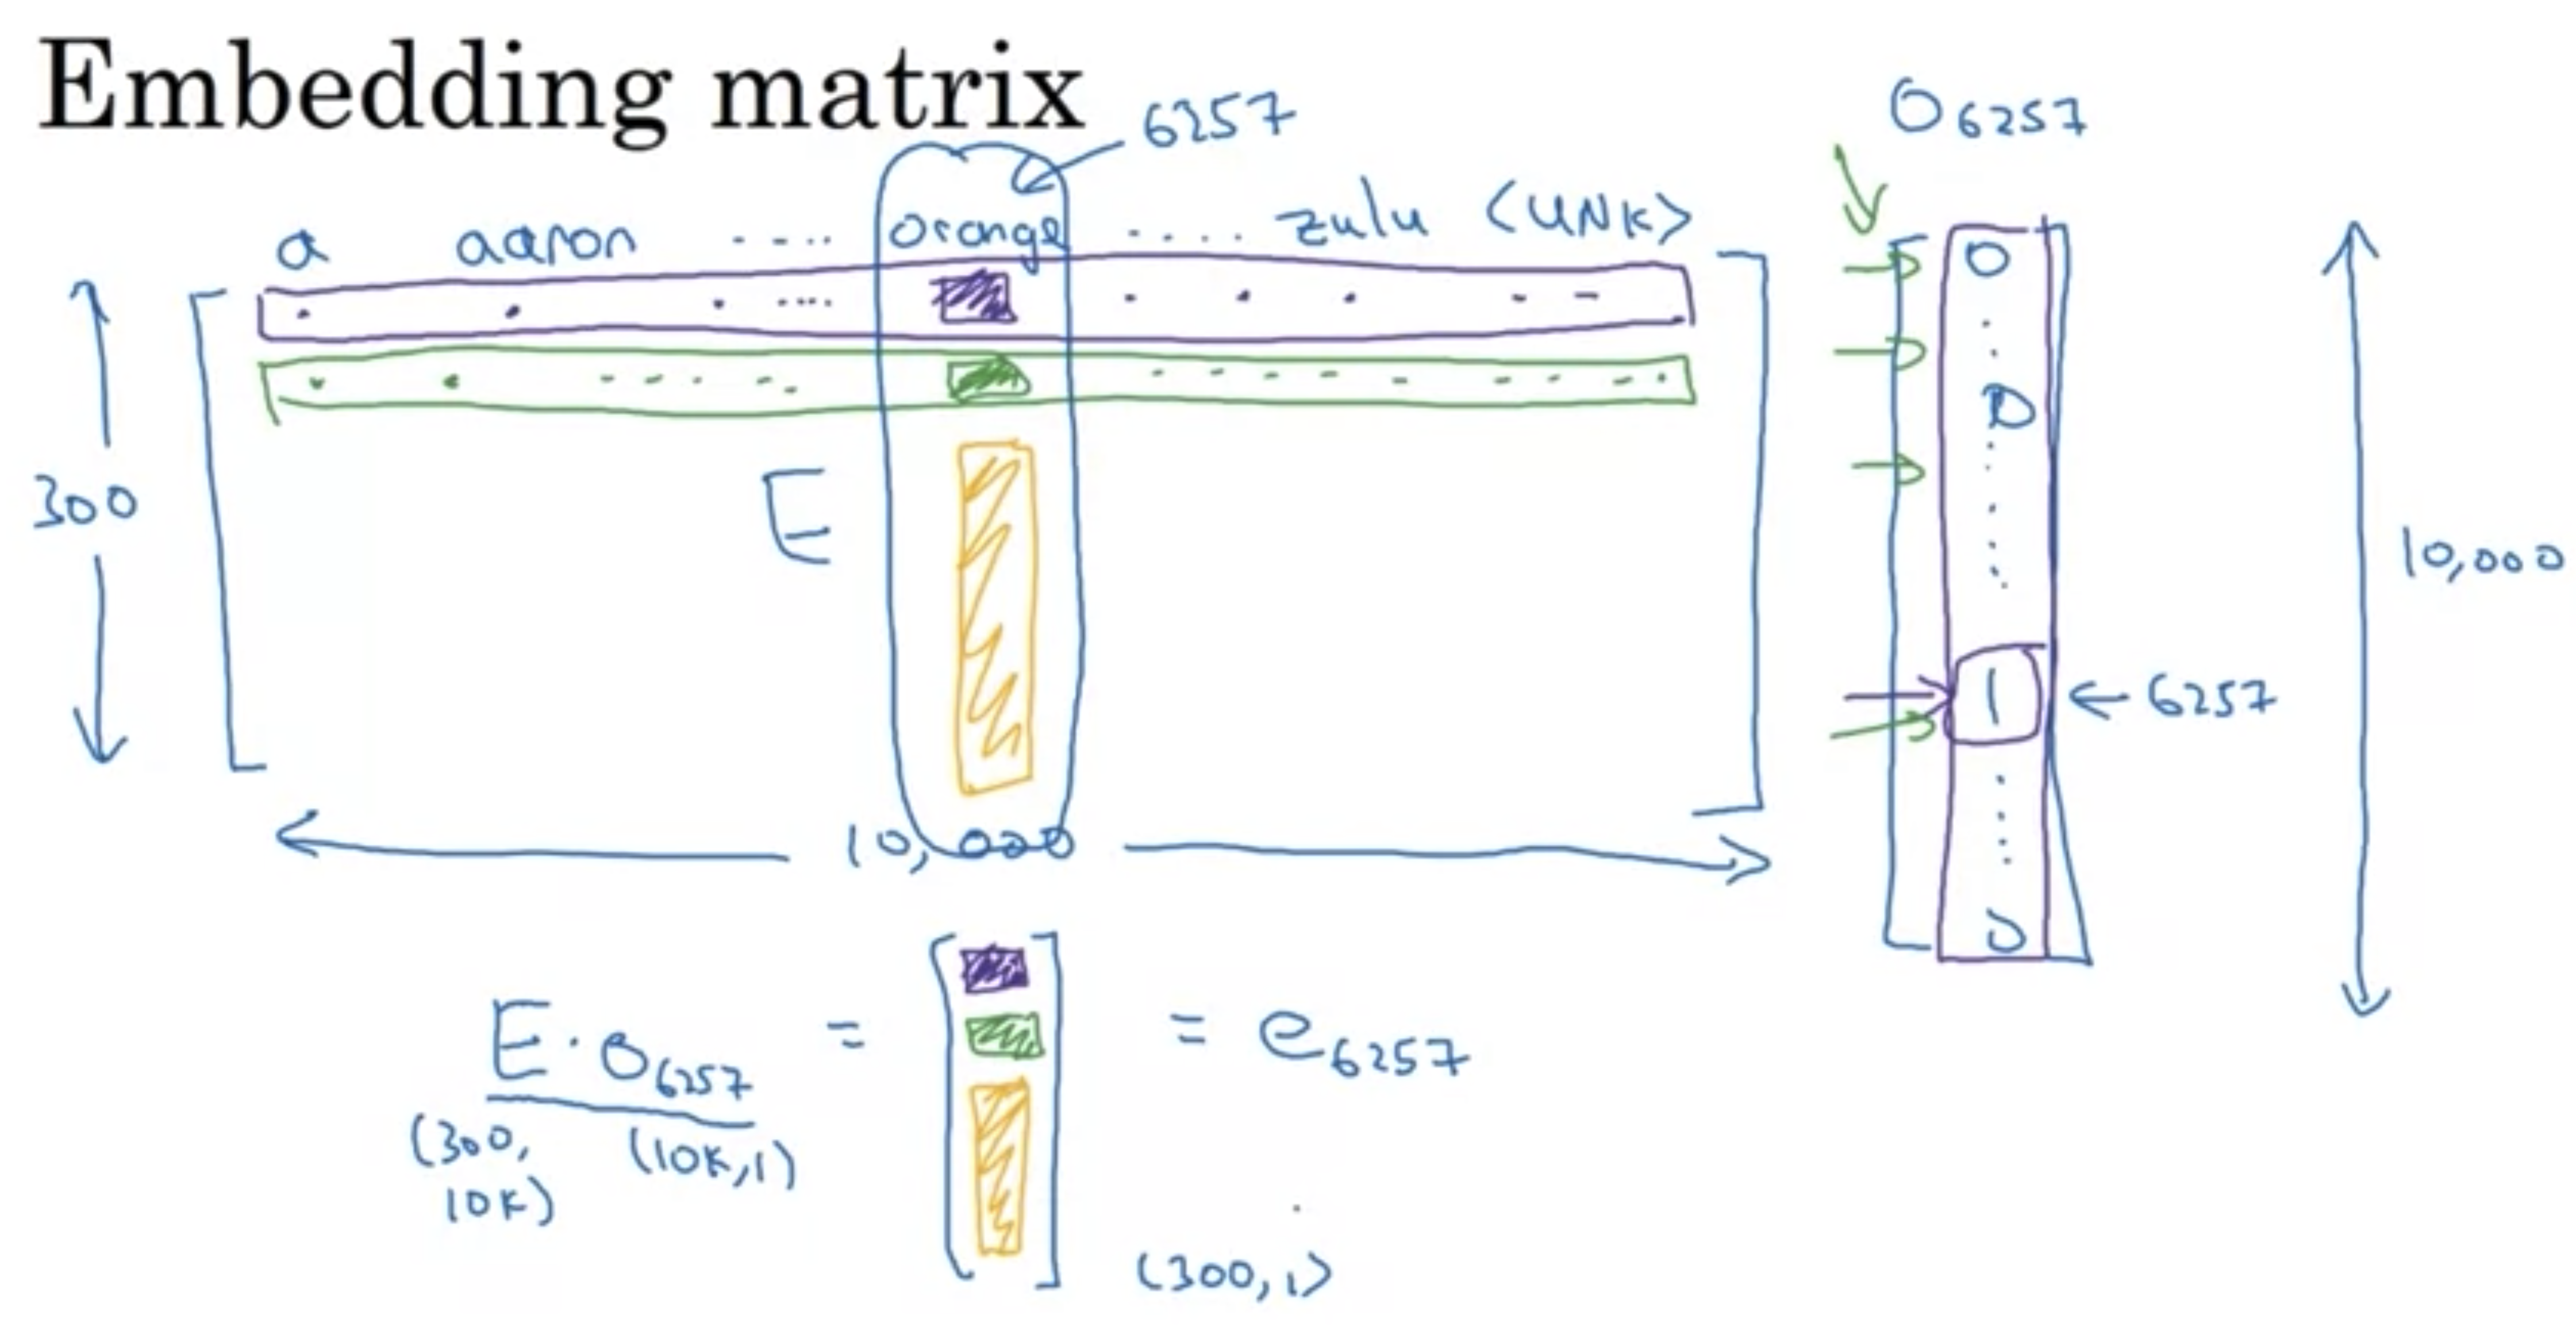 Embedding matrix
6257
O6257
a aaron ..... orange ..... zulu <UNK>
300
E
10,000
0
0
1 ← 6257
0
10,000
E · O6257 = = e6257
(300, 10K) (10K,1)
(300,1)